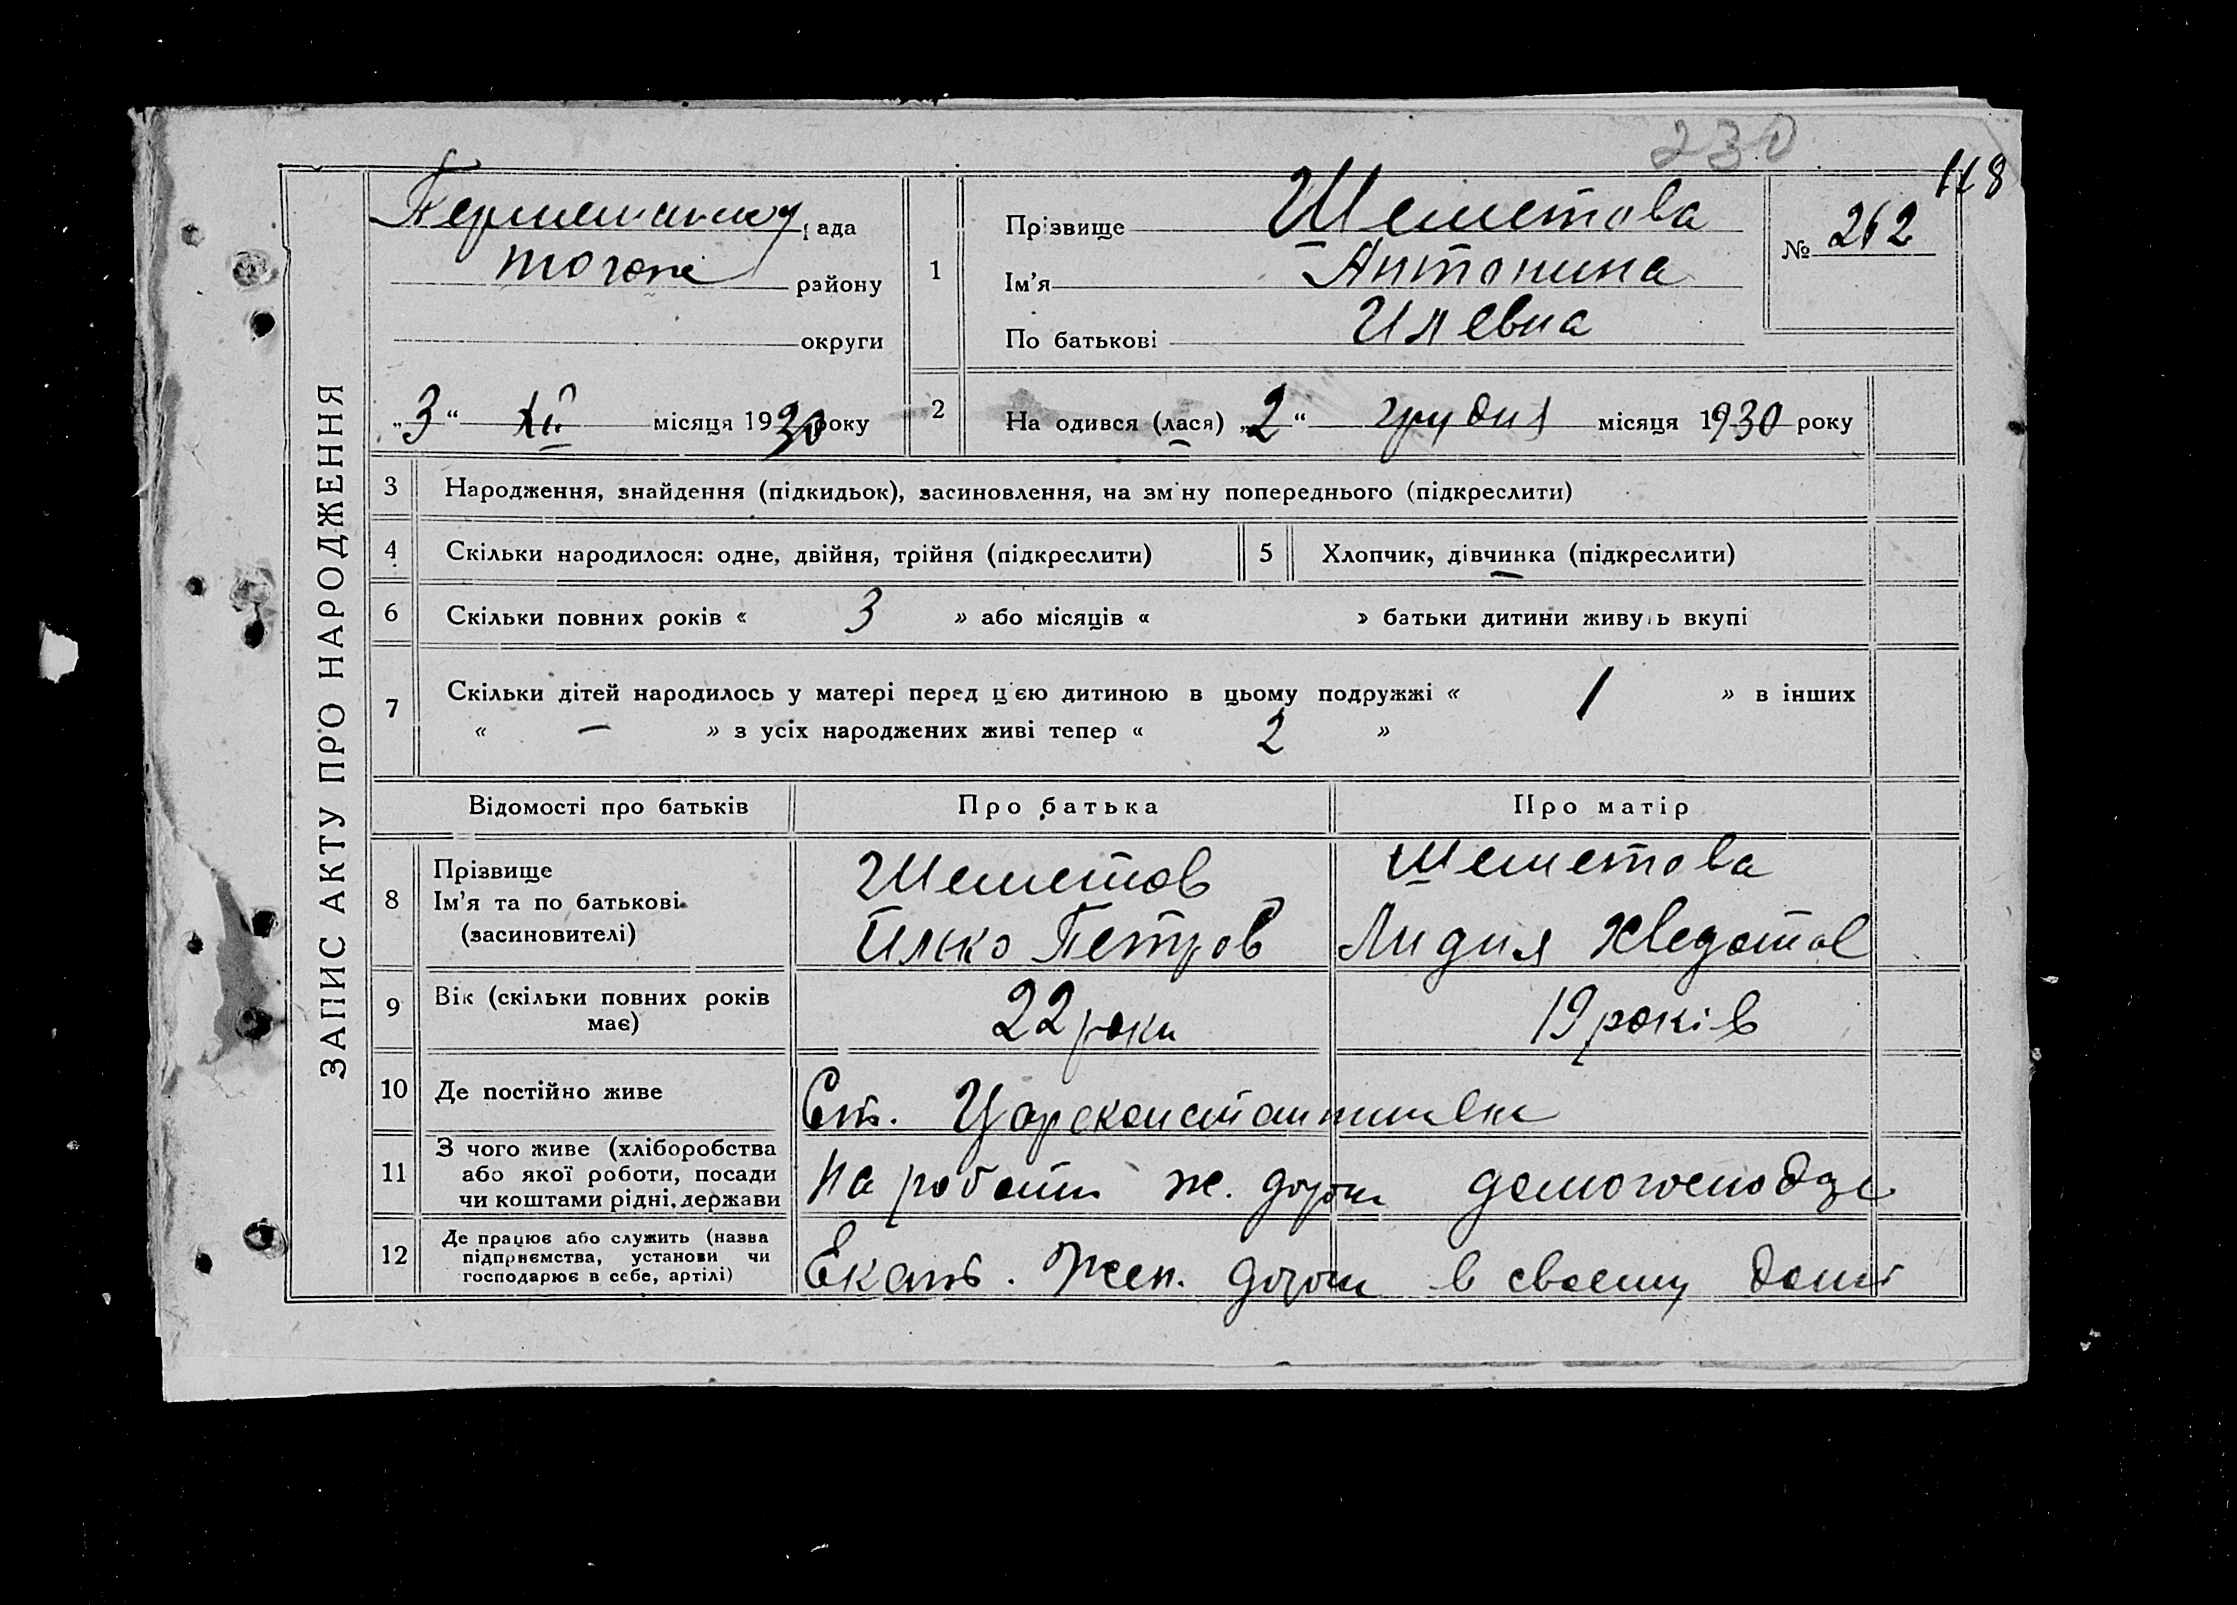 230
118
ЗАПИС АКТУ ПРО НАРОДЖЕННЯ
рада
того ж району
округи
„3“ XII місяця 1930 року
1
Прізвище Шеметова
Ім'я Антонина
По батькові Илевна
№ 262
2 На одився (лася) „2“ грудня місяця 1930 року
3 Народження, знайдення (підкидьок), засиновлення, на зм ну попереднього (підкреслити)
4 Скільки народилося: одне, двійня, трійня (підкреслити)
5 Хлопчик, дівчинка (підкреслити)
6 Скільки повних років « 3 » або місяців « » батьки дитини живуть вкупі
7 Скільки дітей народилось у матері перед цією дитиною в цьому подружжі « 1 » в інших
« — » з усіх народжених живі тепер « 2 »
Відомості про батьків Про батька Про матір
8 Прізвище
Ім'я та по батькові
(засиновителі)
Шеметов
Илько Петров
Шеметова
Лидия Хведотов
9 Вік (скільки повних років
має)
22 роки
19 років
10 Де постійно живе
Ст. Цареконстантиновка
11 З чого живе (хліборобства
або якої роботи, посади
чи коштами рідні, держави
На роботи ж. дороги
домогосподарс
12 Де працює або служить (назва
підприємства, установи чи
господарює в себе, артілі)
Екат. Жел. дороги
в своему доми